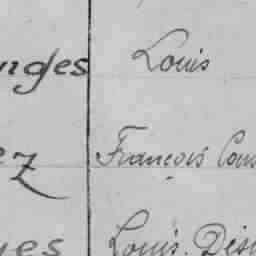 nges Louis
ez François Cons
yes Louis. Dési